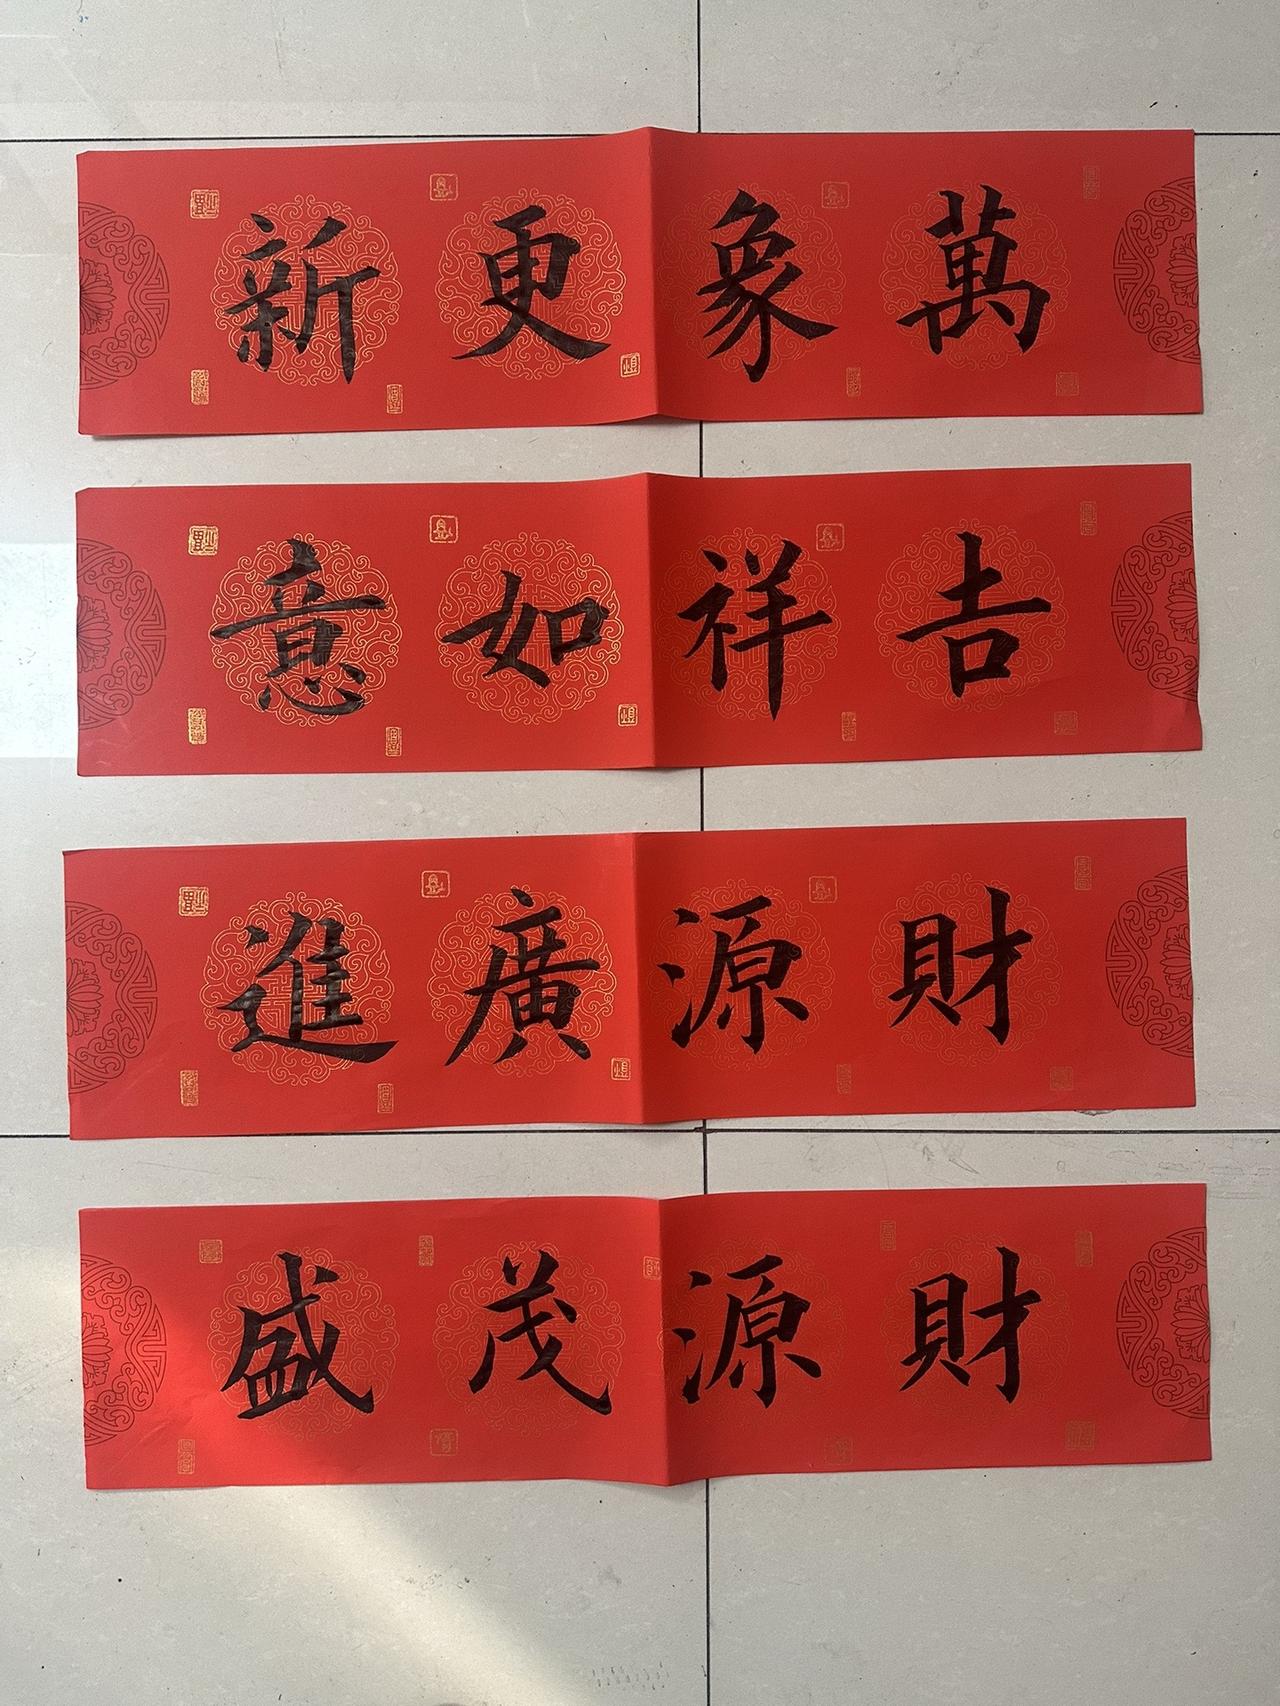 萬象更新
吉祥如意
財源廣進
財源茂盛